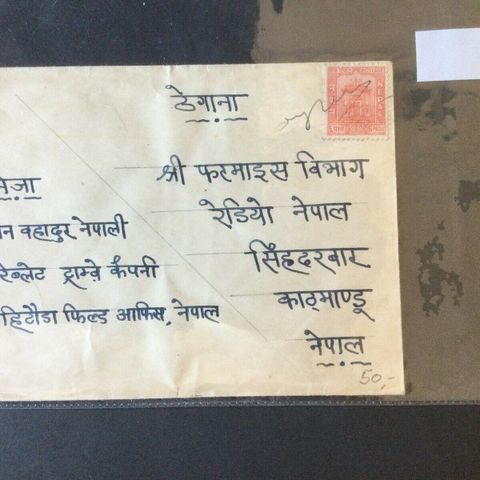 ठेगाना
श्री फरमाइस विभाग
रेडियो नेपाल
सिंहदरबार
काठमाण्डू
नेपाल
न वहादुर नेपाली
ट्राम्वे कैंपनी
हिटौडा फिल्ड आफिस, नेपाल
NEPAL
50,-